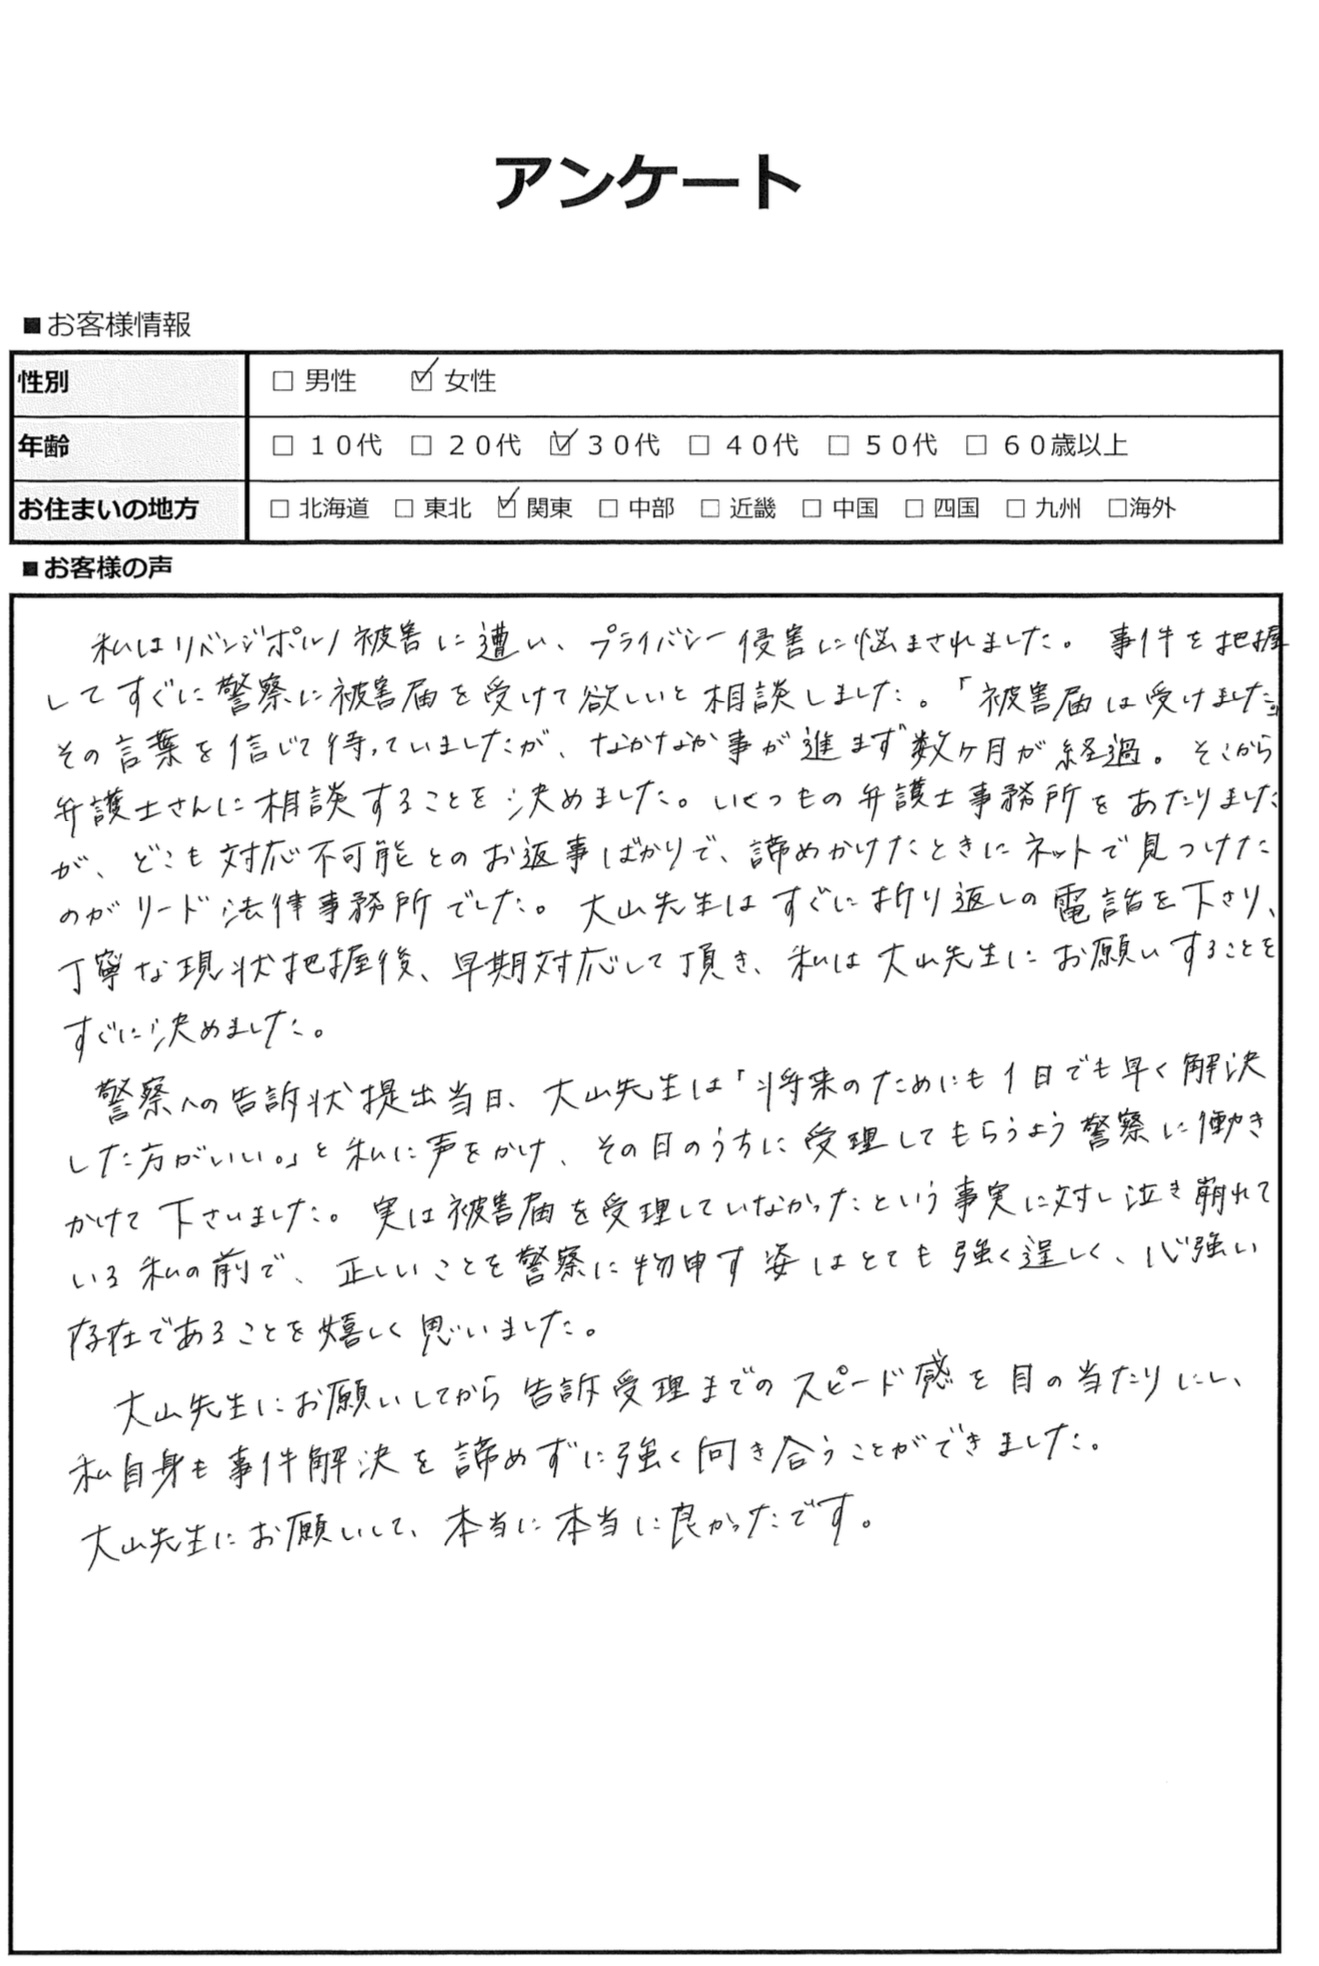 アンケート
■お客様情報
性別 □ 男性 ☑ 女性
年齢 □ １０代 □ ２０代 ☑ ３０代 □ ４０代 □ ５０代 □ ６０歳以上
お住まいの地方 □ 北海道 □ 東北 ☑ 関東 □ 中部 □ 近畿 □ 中国 □ 四国 □ 九州 □海外
■お客様の声
私はリベンジポルノ被害に遭い、プライバシー侵害に悩まされました。事件を把握
してすぐに警察に被害届を受けて欲しいと相談しました。「被害届は受けました」
その言葉を信じて待っていましたが、なかなか事が進まず数ヶ月が経過。そこから
弁護士さんに相談することを決めました。いくつもの弁護士事務所をあたりました
が、どこも対応不可能とのお返事ばかりで、諦めかけたときにネットで見つけた
のがリード法律事務所でした。大山先生はすぐに折り返しの電話を下さり、
丁寧な現状把握後、早期対応して頂き、私は大山先生にお願いすることを
すぐに決めました。
警察への告訴状提出当日、大山先生は「将来のためにも1日でも早く解決
した方がいい。」と私に声をかけ、その日のうちに受理してもらうよう警察に働き
かけて下さいました。実は被害届を受理していなかったという事実に対し泣き崩れて
いる私の前で、正しいことを警察に物申す姿はとても強く逞しく、心強い
存在であることを嬉しく思いました。
大山先生にお願いしてから告訴受理までのスピード感を目の当たりにし、
私自身も事件解決を諦めずに強く向き合うことができました。
大山先生にお願いして、本当に本当に良かったです。